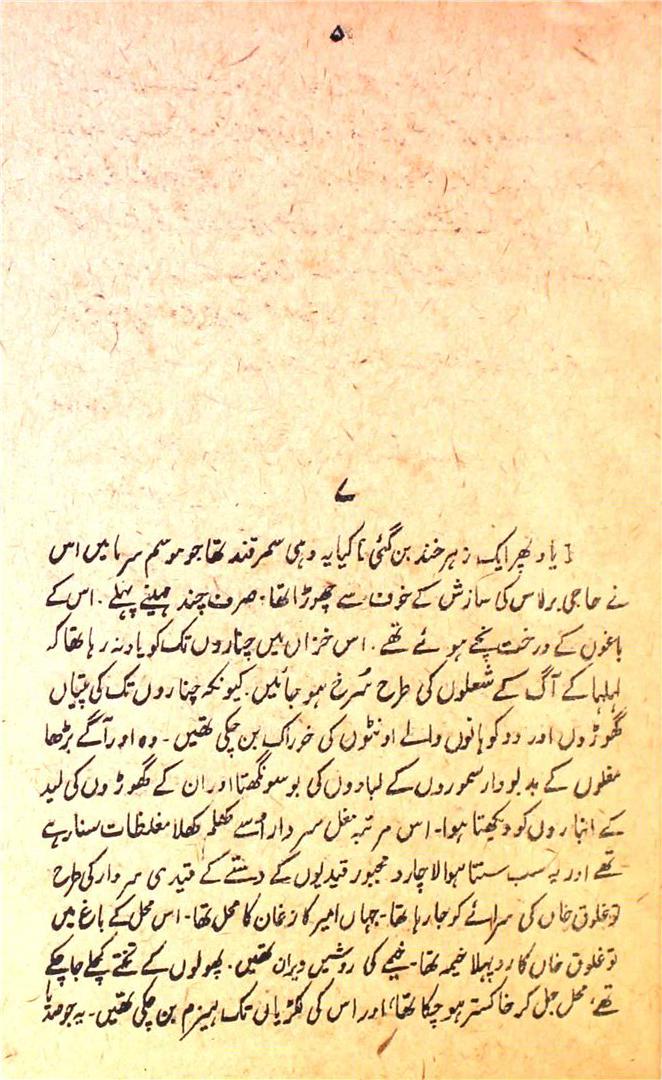 ۵
۷
[یاد پھر ایک زہر خند بن گئی نا کیا یہ وہی سمرقند تھا جو موسم سرما میں اس
نے حاجی برلاس کی سازش کے خوف سے چھوڑا تھا۔ صرف چند مہینے پہلے۔ اس کے
باغوں کے درخت نچے ہوئے تھے۔ اس خزاں میں چناروں تک کو یاد نہ رہا تھا کہ
لہلہا کے آگ کے شعلوں کی طرح سُرخ ہو جائیں۔ کیونکہ چناروں تک کی پتیاں
گھوڑوں اور دو کوہانوں والے اونٹوں کی خوراک بن چکی تھیں۔ وہ اور آگے بڑھا
مغلوں کے بدبودار سموروں کے لبادوں کی بو سونگھتا اور ان کے گھوڑوں کی لید
کے انباروں کو دیکھتا ہوا۔ اس مرتبہ مغل سردار اُسے کھلم کھلا مغلظات سنا رہے
تھے اور یہ سب سنتا ہوا لاچار و مجبور قیدیوں کے دستے کے قیدی سردار کی طرح
توغلوق خاں کی سرائے کو جا رہا تھا۔ جہاں امیر کازغان کا محل تھا۔ اس محل کے باغ میں
توغلوق خاں کا روپہلا خیمہ تھا۔ خیمے کی روشیں ویران تھیں۔ پھولوں کے تختے کچلے جا چکے
تھے، محل جل کر خاکستر ہو چکا تھا، اور اس کی لکڑیاں تک ہیزم بن چکی تھیں۔ یہ جو صدہا